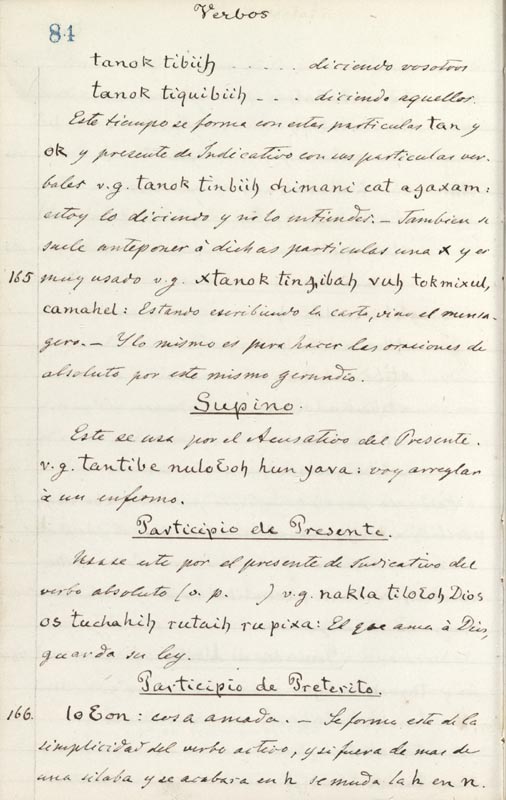 Verbos
84
tanok tibiih ..... diciendo vosotros
tanok tiquibiih ... diciendo aquellos.
Este tiempo se forma con estas particulas tan y
ok y presente de Indicativo con sus particulas ver-
bales v.g. tanok tinbiih chimani cat agaxam:
estoy lo diciendo y no lo entiendes. — Tambien se
suele anteponer à dichas particulas una x y es
165 muy usado v.g. xtanok tin bah vuh tokmixul,
camahel: Estando escribiendo la carta, vino el mensa-
gero. — Y lo mismo es para hacer las oraciones de
absoluto por este mismo gerundio.
Supino.
Este se usa por el Acusativo del Presente.
v.g. tantibe nuloƐoh hun yava: voy arreglar
à un enfermo.
Participio de Presente.
Usase este por el presente de Indicativo del
verbo absoluto (o. p. ) v.g. nakla tiloƐoh Dios
os tuchahih rutaih rupixa: El que ama à Dios,
guarda su ley.
Participio de Preterito.
166. loƐon: cosa amada. — Se forma este de la
simplicidad del verbo activo, y si fuera de mas de
una silaba y se acabara en h se muda la h en n.